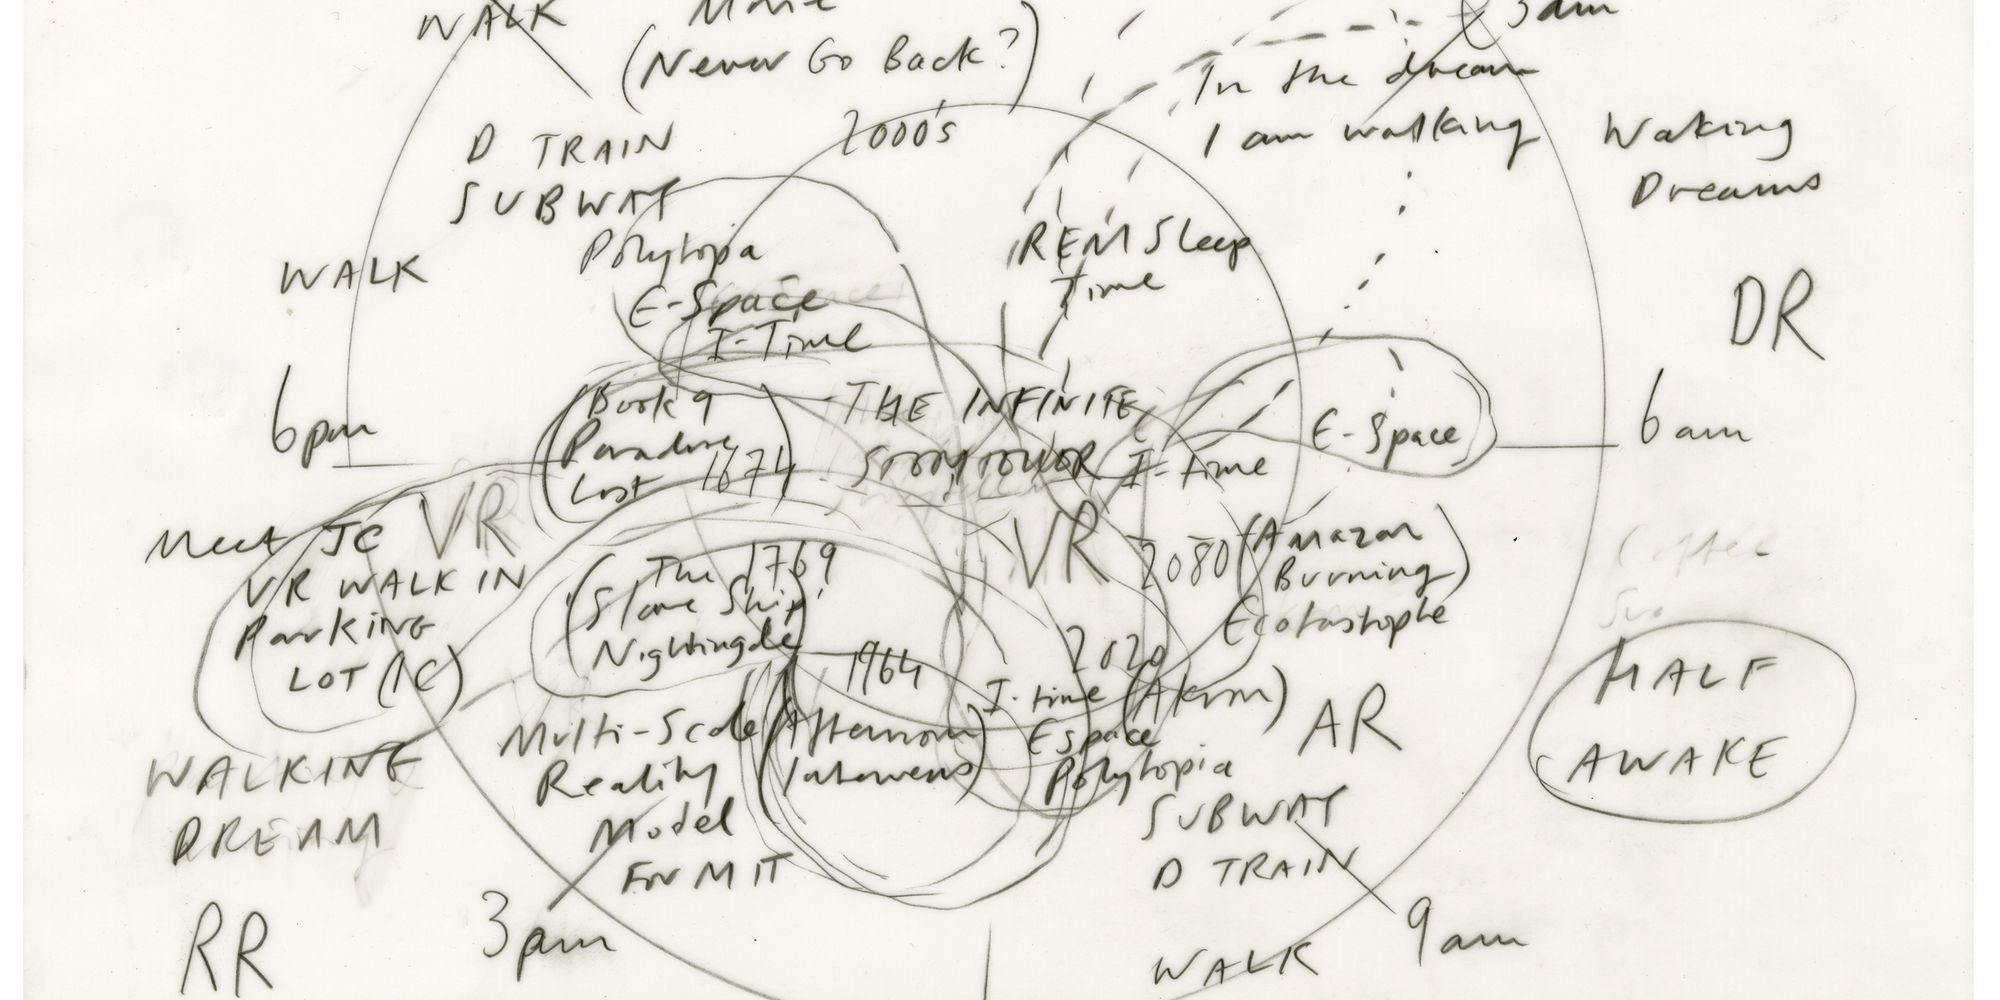 WALK
Movie
(Never Go Back?)
3am
In the dream
I am walking
Waking
Dreams
2000's
D TRAIN
SUBWAY
Polytopia
E-Space
I-Time
WALK
REM Sleep
Time
DR
6pm
Book 9
Paradise
Lost 1674
THE INFINITE
I-time
E-Space
6am
Meet JC
VR
VR WALK IN
Parking
LOT (IC)
The 1769
Slave Ship
Nightingale
VR
2080 (Amazon
Burning)
Ecotastrophe
Coffee
HALF
AWAKE
1964
(Afternoon
2020
I-time
Espace
Polytopia
AR
SUBWAY
D TRAIN
Multi-Scale
Reality
Model
For MIT
WALKING
DREAM
RR
3pm
9am
WALK